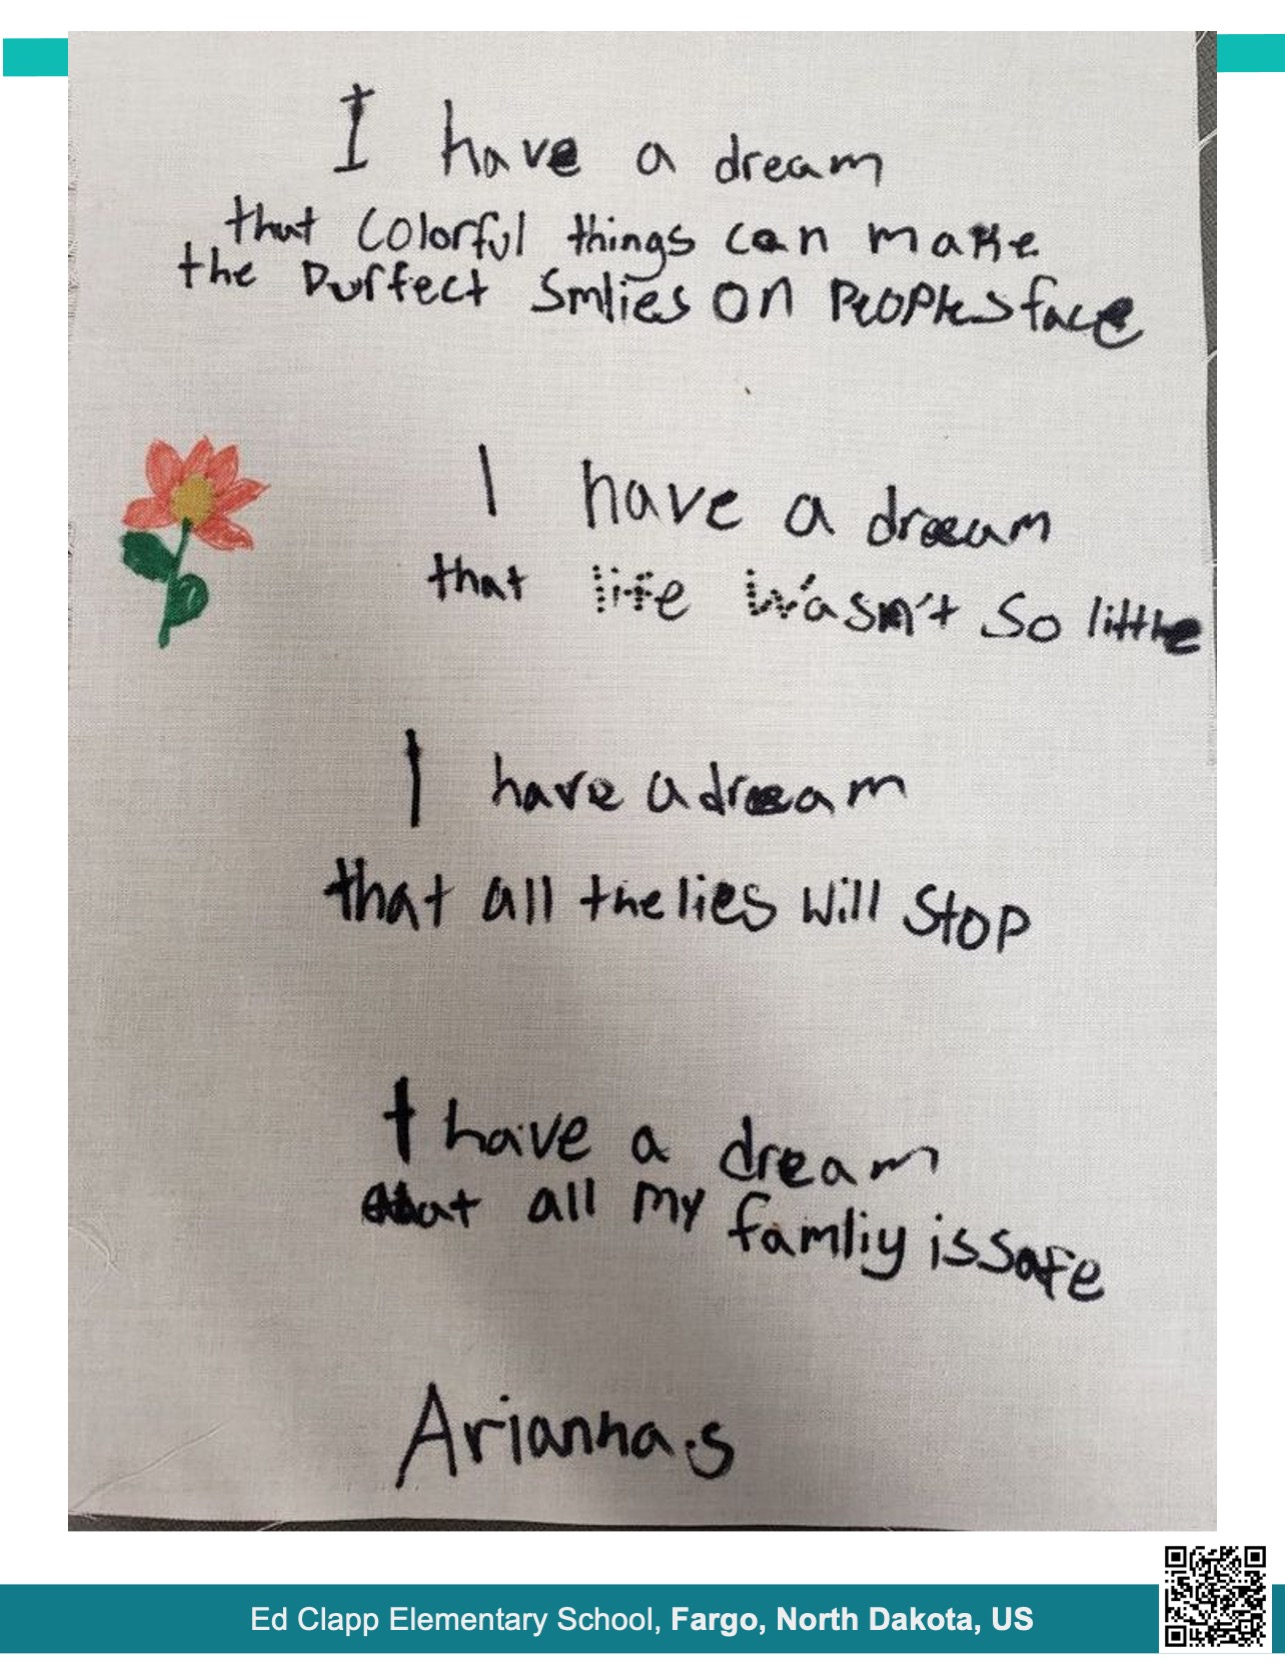 I have a dream
that Colorful things can make
the Purfect Smlies on PeoPles face
I have a dream
that life wasn't So little
I have a dream
that all the lies will Stop
I have a dream
that all my famliy is safe
Arianna.s
Ed Clapp Elementary School, Fargo, North Dakota, US